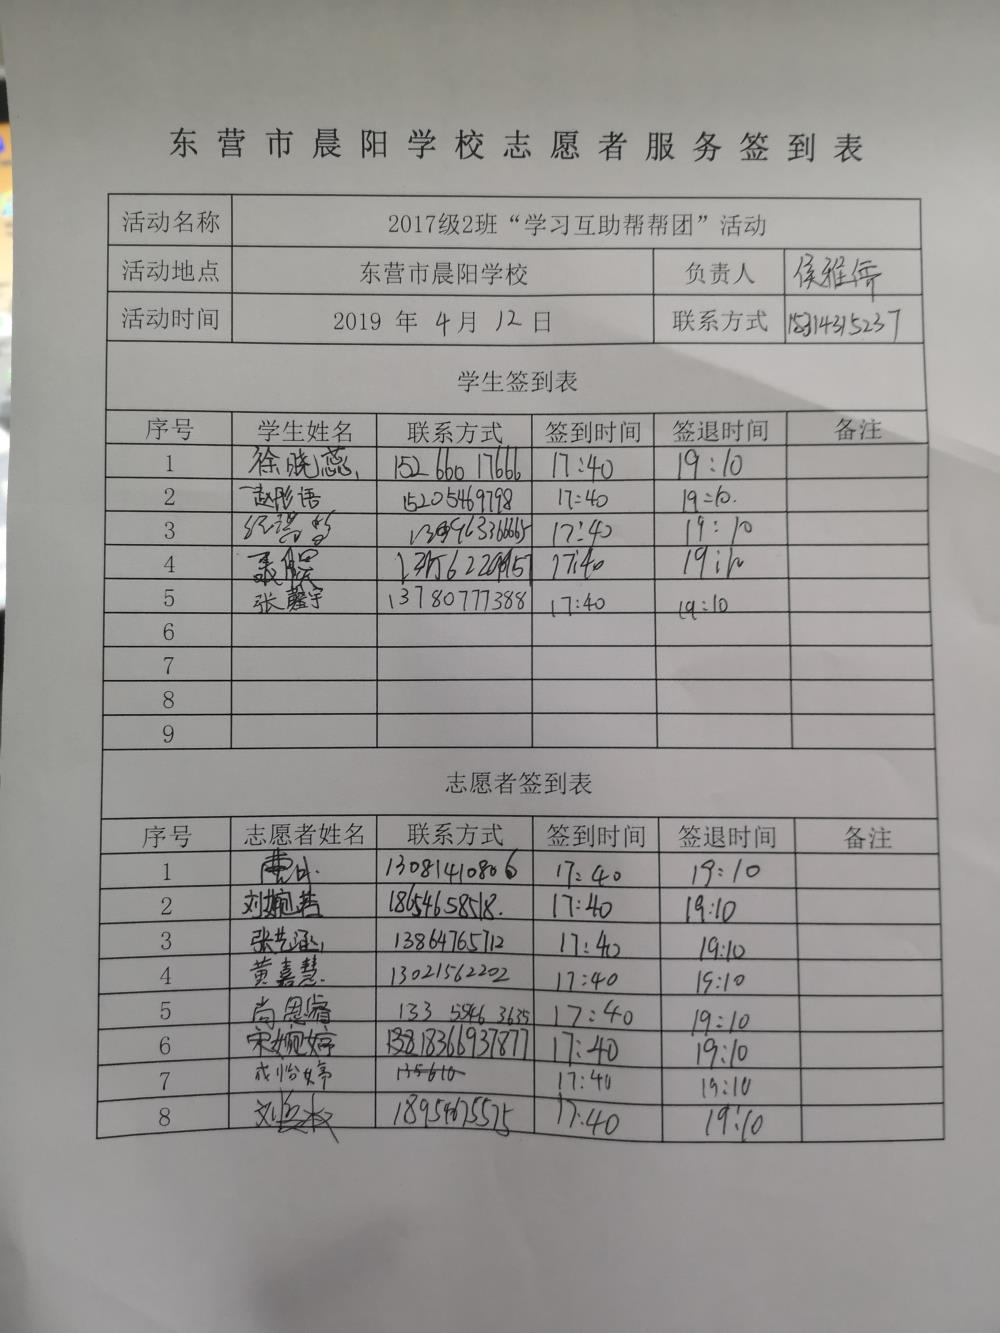 东营市晨阳学校志愿者服务签到表
活动名称 2017级2班“学习互助帮帮团”活动
活动地点 东营市晨阳学校 负责人 侯雅侨
活动时间 2019 年 4 月 12 日 联系方式
学生签到表
序号 学生姓名 联系方式 签到时间 签退时间 备注
1 徐晓蕊 152 660 17666 17:40 19:10
2 赵彤语 15205469798 17:40 19:10.
3 17:40 19:10
4 17:40 19:10
5 张馨宇 13780777388 17:40 19:10
6
7
8
9
志愿者签到表
序号 志愿者姓名 联系方式 签到时间 签退时间 备注
1 13081410806 17:40 19:10
2 刘婉茹 18654658518. 17:40 19:10
3 张艺涵 13864765712 17:40 19:10
4 黄嘉慧. 13021562202 17:40 19:10
5 尚恩睿 133 5546 3635 17:40 19:10
6 宋婉婷 17:40 19:10
7 成怡婷 135610 17:40 19:10
8 18954675575 17:40 19:10